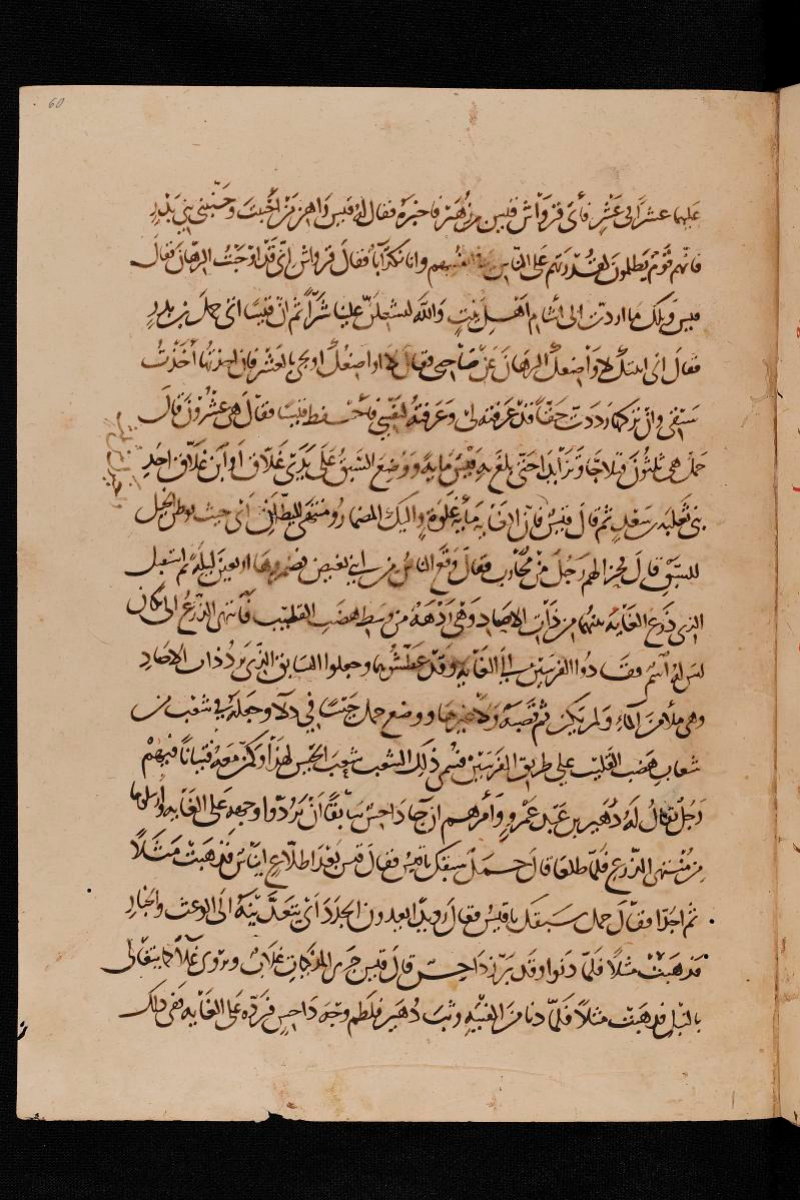 60
عليهما عشراً الى عشر فأتى قرواش قيس بن زهير فاخبره فقال له قيس راهن من احببت وجنبني بني بدر
فانهم قوم يظلمون لقدرتهم على الناس في انفسهم وانا نكد أباء فقال قرواش انى قد اوجبت الرهان فقال
قيس ويلك ما اردت الى اشأم اهل بيت والله لتشعلن علينا شراً ثم ان قيسًا اتى حمل بن بدر
فقال انى اتيتك لاواضعك الرهان عن صاحبى فقال لا اواضعك او تجى بالعشر فان اخذتها أخذت
سبقى وان تركتها رددت حقاً قد عرفته لى وعرفته لنفسي فأحفظ قيسا فقال هى عشرون قال
حمل هى ثلثون فتلاجا وتزايدا حتى بلغ به قيس مايةً ووضع السبق على يدى غلاق او ابن غلاق احد
بنى ثعلبة بن سعد ثم قال قيس فان الغاية مأية غلوة واليك المضمار ومنتهى الميطان اى حيث يوطن الخيل
للسبق قال فخر لهم رجل من محارب فقال وقع الباس بين ابنى بغيض فضمروها اربعين ليلة ثم استقبل
الذى ذرع الغاية بينهما من ذات الاصاد وهى ردهة من وسط هضب القليب فأنتهى الذرع الى مكان
ليس له اسم فقادوا الفرسين الى الغاية وقد عطشوهما وجعلوا السابق الذى يرد ذات الاصاد
وهى ملأى من الماء ولم يكن ثم قصبة ولا غيرها ووضع حمل حيسًا في دلاء وجعله في شعب من
شعاب هضب القليب على طريق الفرسين فسمى ذلك الشعب شعب الحيس لهذا وكمن معه فتيانا فيهم
رجل يقال له زهير بن عبد عمرو وأمرهم ان جا داحس سابقًا أن يردوا وجهه على الغاية وارسلوها
من منتهى الذرع فلما طلعا قال حمل سبقتك يا قيس فقال قيس بعد اطلاع ايناس فذهبت مثلاً
ثم اجدا فقال حمل سبقتك يا قيس فقال رويدا يعدون الجدد أى يتعدينه الى الوعث والخبار
فذهبت مثلاً فلما دنوا وقد برز داحس قال قيس جرى المذكيات غلاب ويروى غلاء كما يتغالى
بالنبل فذهبت مثلاً فلما دنا من الفتية وثب زهير فلطم وجه داحس فرده على الغاية ففى ذلك